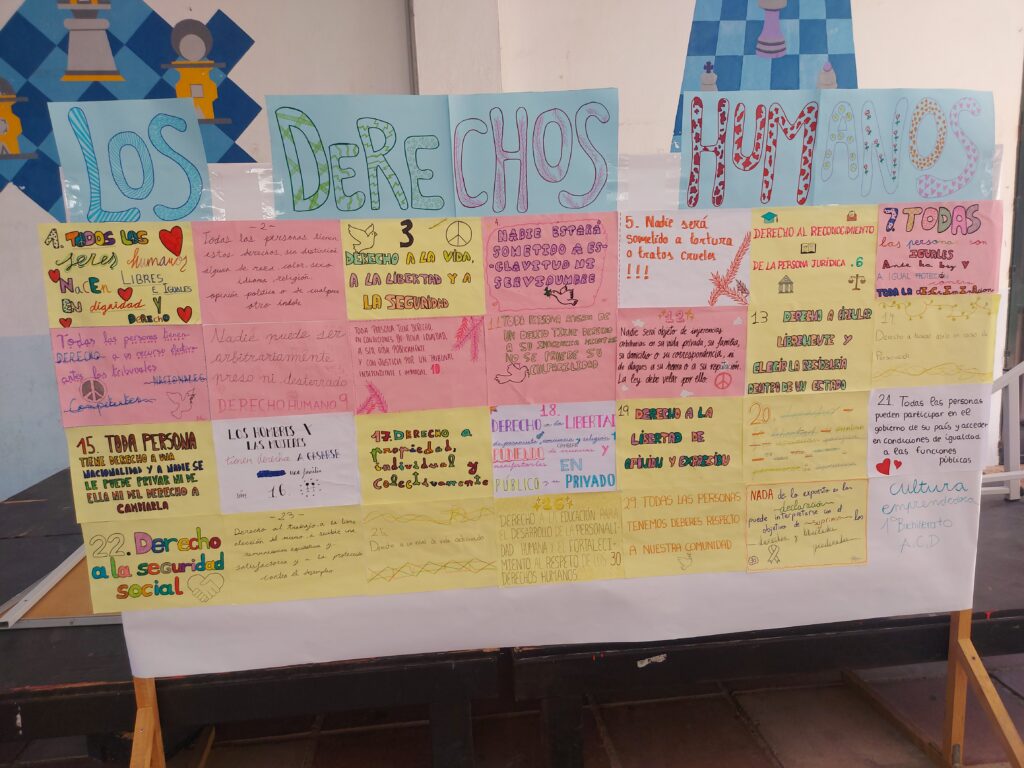 LOS DERECHOS HUMANOS
1. TODOS LOS
seres humanos
NaCEn LIBRES
E IGUALES
EN dignidad y
DERECHO
-2-
Todas las personas tienen
estos derechos, sin distinción
alguna de raza, color, sexo
idioma, religion,
opinión política o de cualquier
otro índole
3
DERECHO A LA VIDA,
A LA LIBERTAD Y A
LA SEGURIDAD
4
NADIE ESTARÁ
SOMETIDO A ES-
CLAVITUD NI
SERVIDUMBRE
5. Nadie será
somelido a tortura
o tratos crueles
!!!
DERECHO AL RECONOCIMIENTO
DE LA PERSONA JURÍDICA .6
7 TODAS
las personas son
IGUALES
Ante la ley
A IGUAL
Todas las personas tienen
DERECHO a un recurso
ante los tribunales
NACIONALES
Competentes
Nadie puede ser
arbitrariamente
preso ni desterrado
DERECHO HUMANO 9
TODA PERSONA TIENE DERECHO,
EN CONDICIONES DE PLENA IGUALDAD,
A SER OIDA PUBLICAMENTE
Y CON JUSTICIA POR UN TRIBUNAL
INDEPENDIENTE E IMPARCIAL 10
11 TODA PERSONA ACUSADA DE
UN DELITO TIENE DERECHO
A SU INOCENCIA MIENTRAS
NO SE PRUEBE SU
CULPABILIDAD
12
Nadie será objeto de injerencias
arbitrarias en su vida privada, su familia,
su domicilio o su correspondencia, ni
de ataques a su honra o a su reputación.
La ley debe velar por ello
13 DERECHO A CIRCULAR
LIBREMENTE Y
ELEGIR LA RESIDENCIA
DENTRO DE UN ESTADO
14
15. TODA PERSONA
TIENE DERECHO A UNA
NACIONALIDAD Y A NADIE SE
LE PUEDE PRIVAR NI DE
ELLA NI DEL DERECHO A
CAMBIARLA
LOS HOMBRES Y
LAS MUJERES
tienen derecha A CASARSE
una familia
16
17. DERECHO A
propiedad,
individual y
colectivamente
18.
DERECHO a la LIBERTAD
de pensamiento, conciencia y religión
EN
PÚBLICO y PRIVADO
19 DERECHO A LA
LIBERTAD DE
OPINIÓN Y EXPRESIÓN
20.
21. Todas las personas
pueden participar en el
gobierno de su país y acceder
en condiciones de igualdad
a las funciones
públicas
22. Derecho
a la seguridad
social
-23-
Derecho al trabajo a la libre
elección del mismo, a recibir una
remuneración equitativa y
satisfactoria y a la protección
contra el desempleo
26
DERECHO A LA EDUCACIÓN PARA
EL DESARROLLO DE LA PERSONALI-
DAD HUMANA Y EL FORTALECI-
MIENTO AL RESPETO DE LOS
DERECHOS HUMANOS
29. TODAS LAS PERSONAS
TENEMOS DEBERES RESPECTO
A NUESTRA COMUNIDAD
NADA de lo expuesto en la
declaración
puede interpretarse con el
objetivo de suprimir los
derechos y libertades
30
Cultura
emprendedora
1º Bachillerato
A.C.D